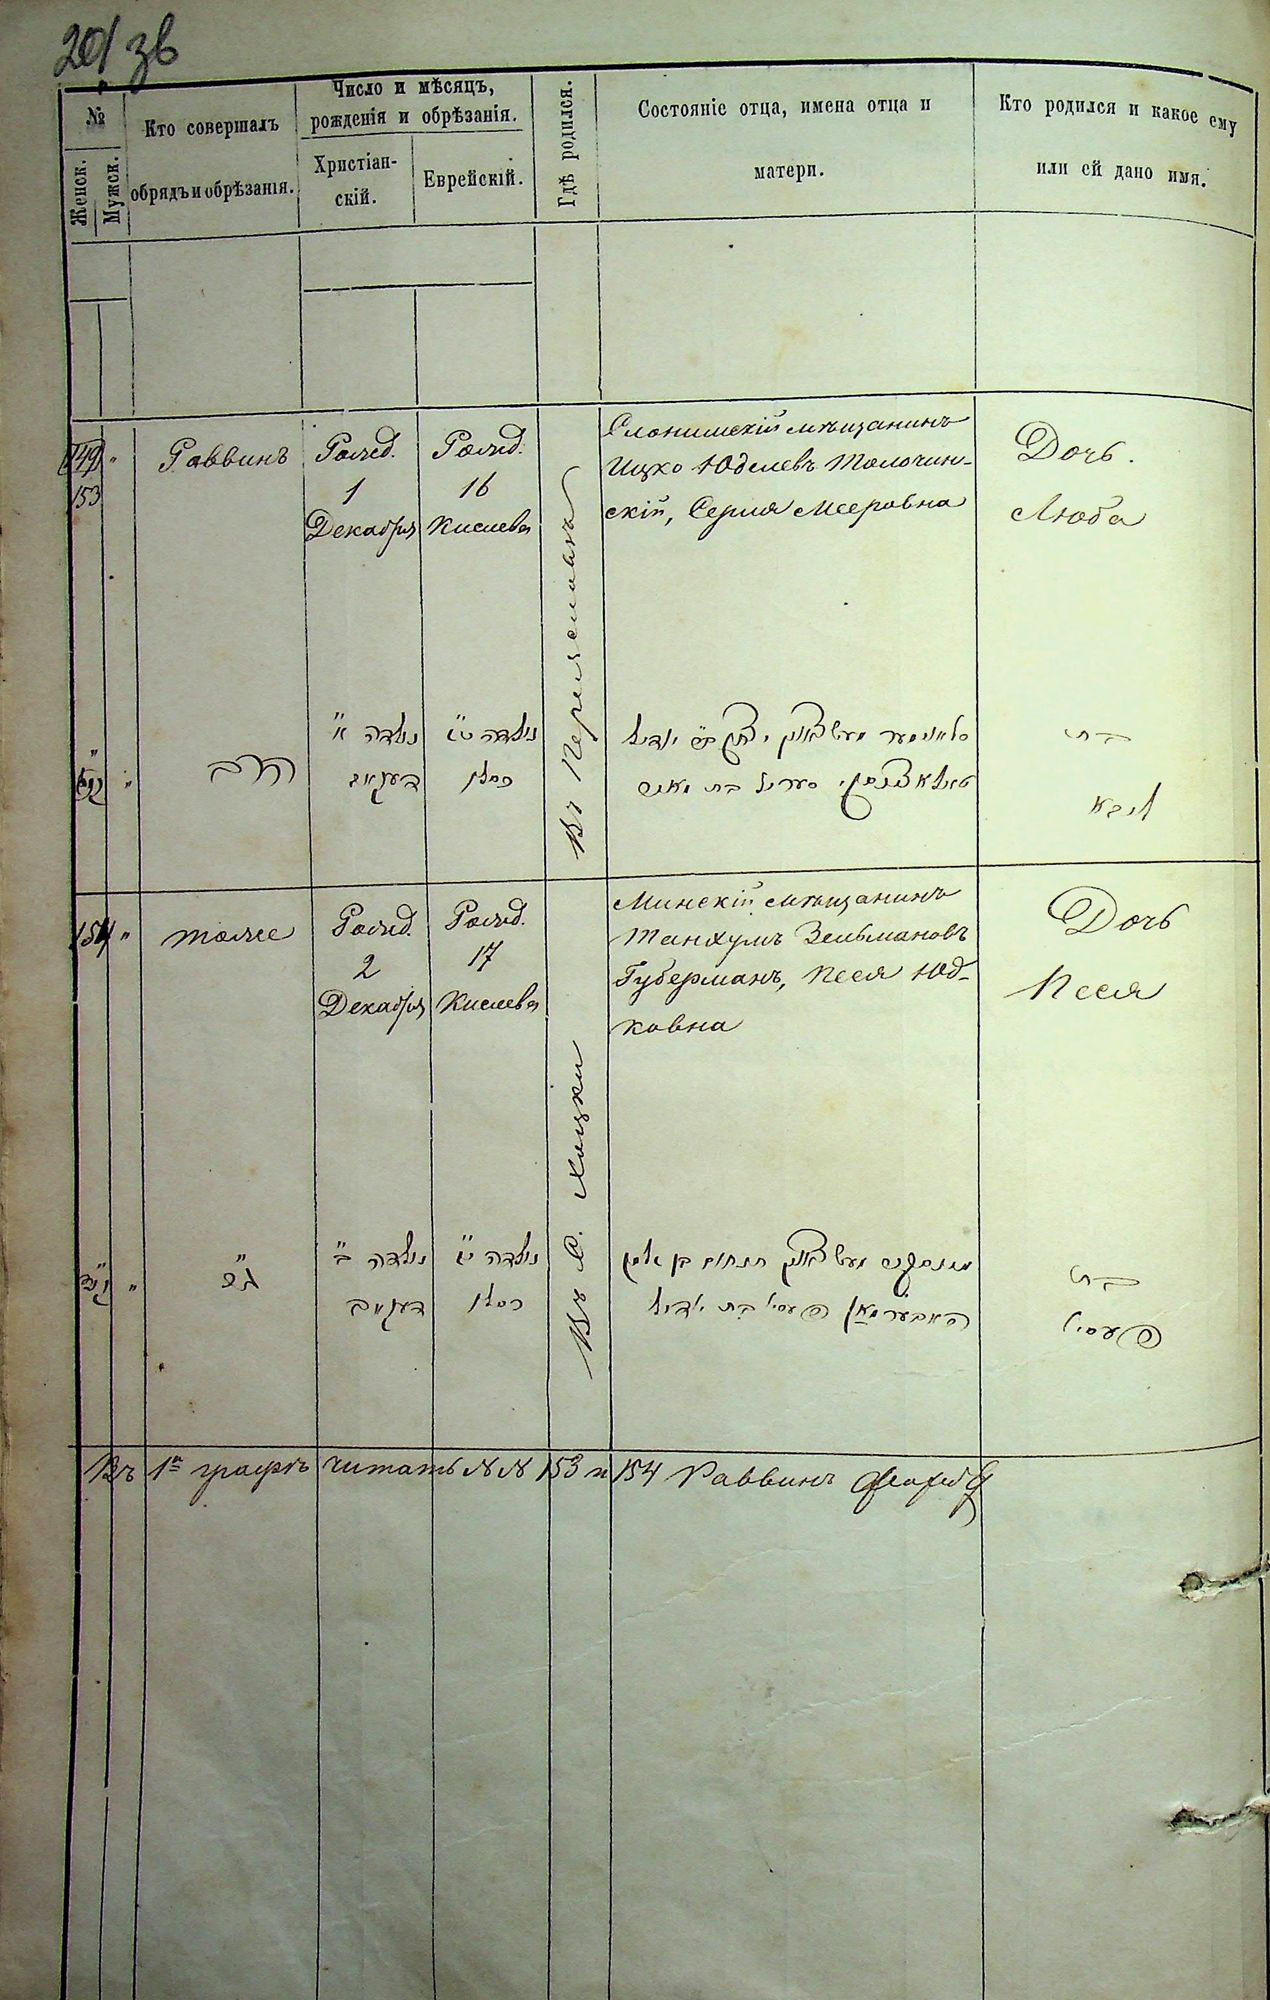 201 зв
№
Женск.
Мужск.
Кто совершалъ
обрядъ и обрѣзанія.
Число и мѣсяцъ,
рожденія и обрѣзанія.
Христіан-
скій.
Еврейскій.
Гдѣ родился.
Состояніе отца, имена отца и
матери.
Кто родился и какое ему
или ей дано имя.
149 "
153
Раввинъ
Рожд.
1
Декабря
Рожд.
16
Кислева
Въ Переяславѣ
Слонимскій мѣщанинъ
Ицко Юделевъ Толочин-
скій, Серля Мееровна
Дочь.
Люба
הרב
נולדה א"
דעקאב
נולדה
כסלו
בת
ליבא
154 "
тоже
Рожд.
2
Декабря
Рожд.
17
Кислева
Въ С. Хоцки
Минскій мѣщанинъ
Танхумъ Зельмановъ
Губерманъ, Песя Юд-
ковна
Дочь
Песя
נולדה ב"
דעקאב
נולדה
כסלו
תנחום בן
פעסיל בת יודיל
בת
פעסיל
Въ 1й графѣ читать №№ 153 и 154 Раввинъ